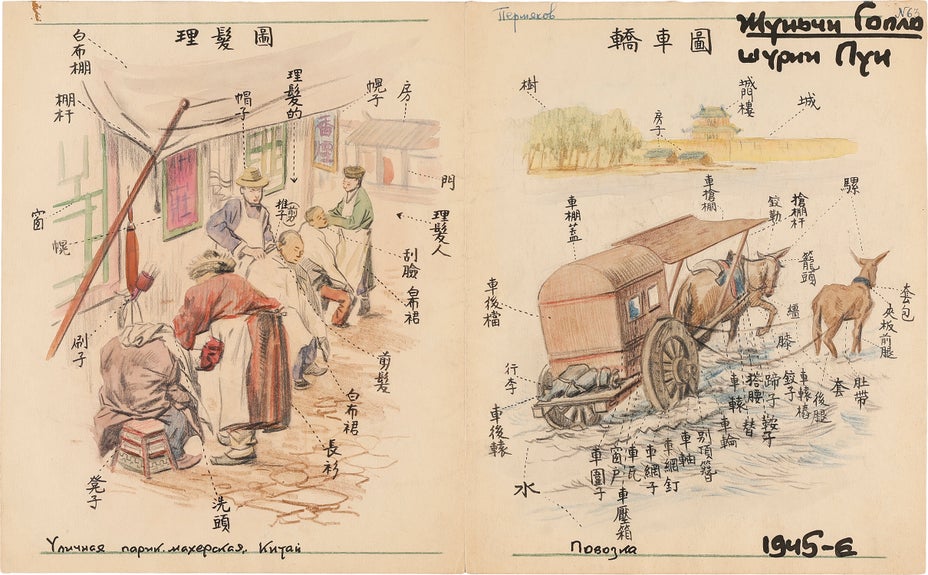 理髮圖
白布棚
棚杆
帽子
理髮的
幌子
房
門
窗
幌
推子
剪
理髮人
刮臉
白布裙
刷子
剪髮
白布裙
長衫
凳子
洗頭
Уличная парикмахерская, Китай
Пермяков
№63
轎車圖
樹
房子
城門樓
城
車棚蓋
車搶棚
搶棚杆
騾
籠頭
套包
夾板前腿
車後檔
繮
膝
行李
車後轅
車轅
搭腰
蹄子
鞍子
車轅樁
後腿
套
肚帶
車輪
車軸
車網釘
車網子
車瓦
窗戶
車圍子
車壓箱
水
Повозка
1945-